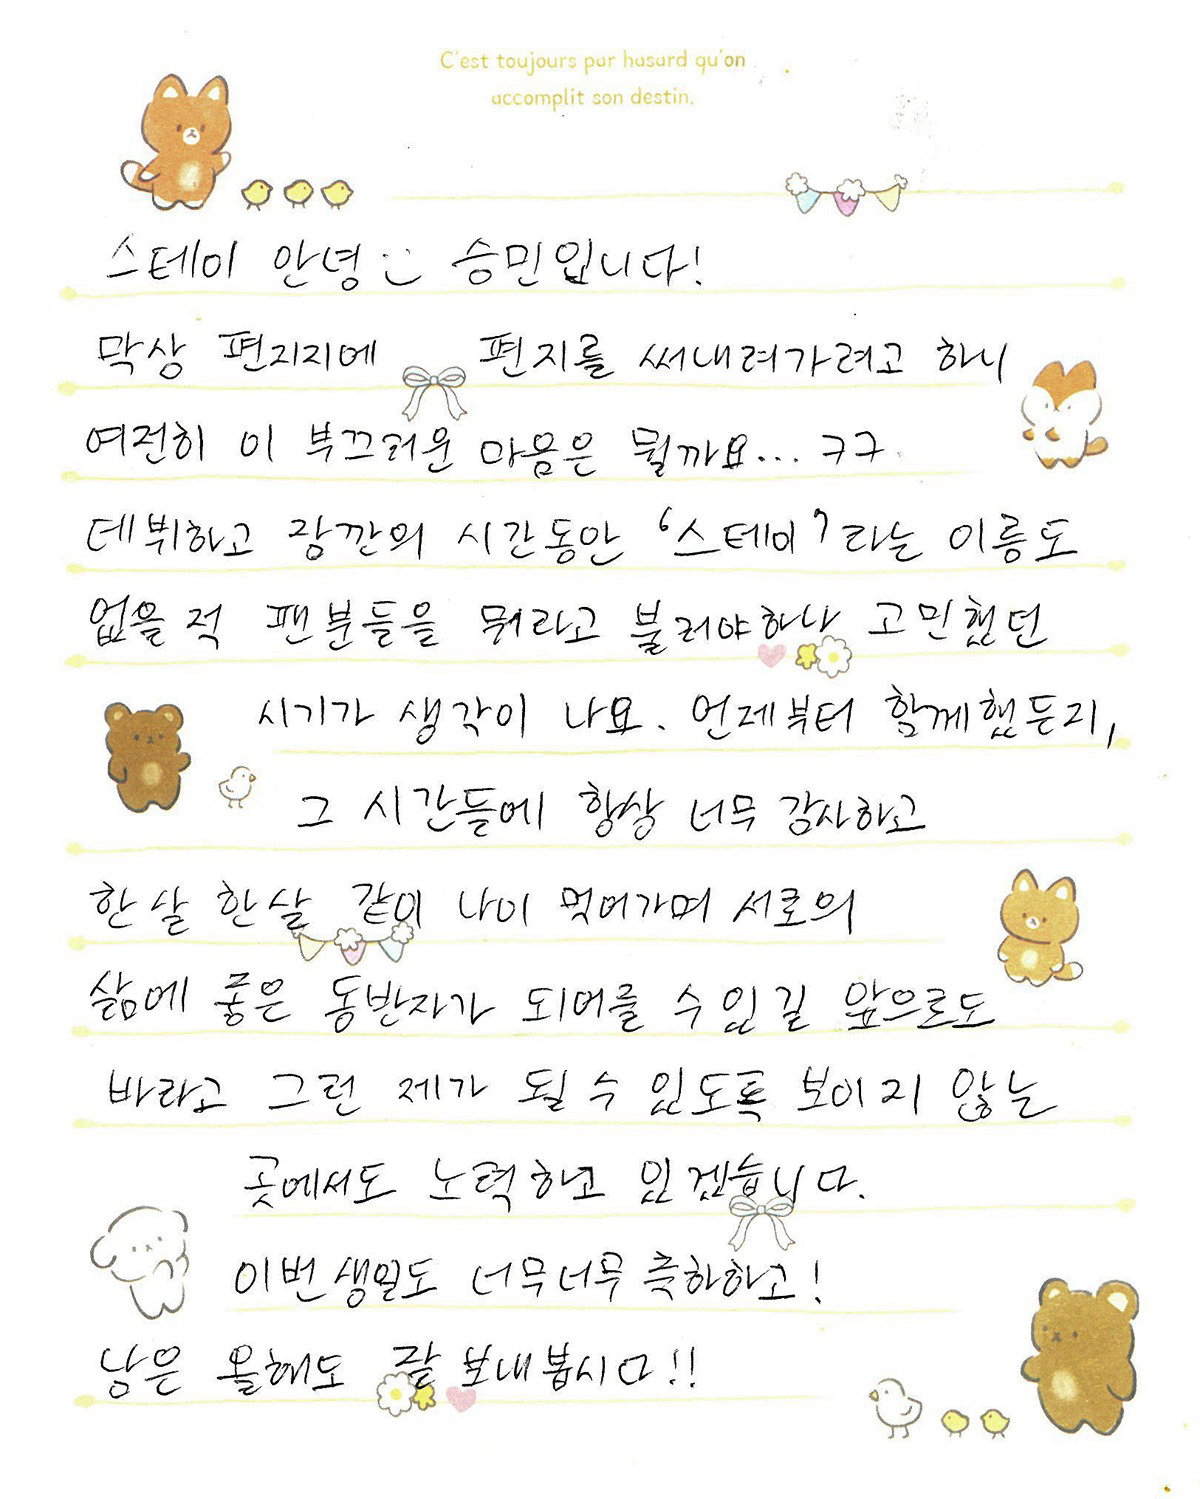 C'est toujours par hasard qu'on
accomplit son destin.
스테이 안녕 승민입니다!
막상 편지지에 편지를 써내려가려고 하니
여전히 이 부끄러운 마음은 뭘까요... ㅋㅋ
데뷔하고 잠깐의 시간동안 '스테이'라는 이름도
없을 적 팬분들을 뭐라고 불러야하나 고민했던
시기가 생각이 나요. 언제부터 함께했든지,
그 시간들에 항상 너무 감사하고
한살 한살 같이 나이 먹어가며 서로의
삶에 좋은 동반자가 되어줄 수 있길 앞으로도
바라고 그런 제가 될 수 있도록 보이지 않는
곳에서도 노력하고 있겠습니다.
이번 생일도 너무너무 축하하고!
남은 올해도 잘 보내봅시다!!